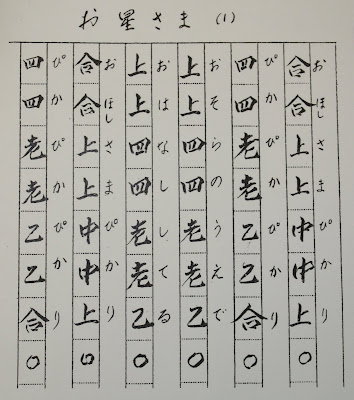 お星さま (1)
おほしさまぴかり
合合上上中中上〇
ぴかぴかぴかり
四四老老乙乙合〇
おそらのうえで
上上四四老老乙〇
おはなししてる
上上四四老老乙〇
おほしさまぴかり
合合上上中中上〇
ぴかぴかぴかり
四四老老乙乙合〇